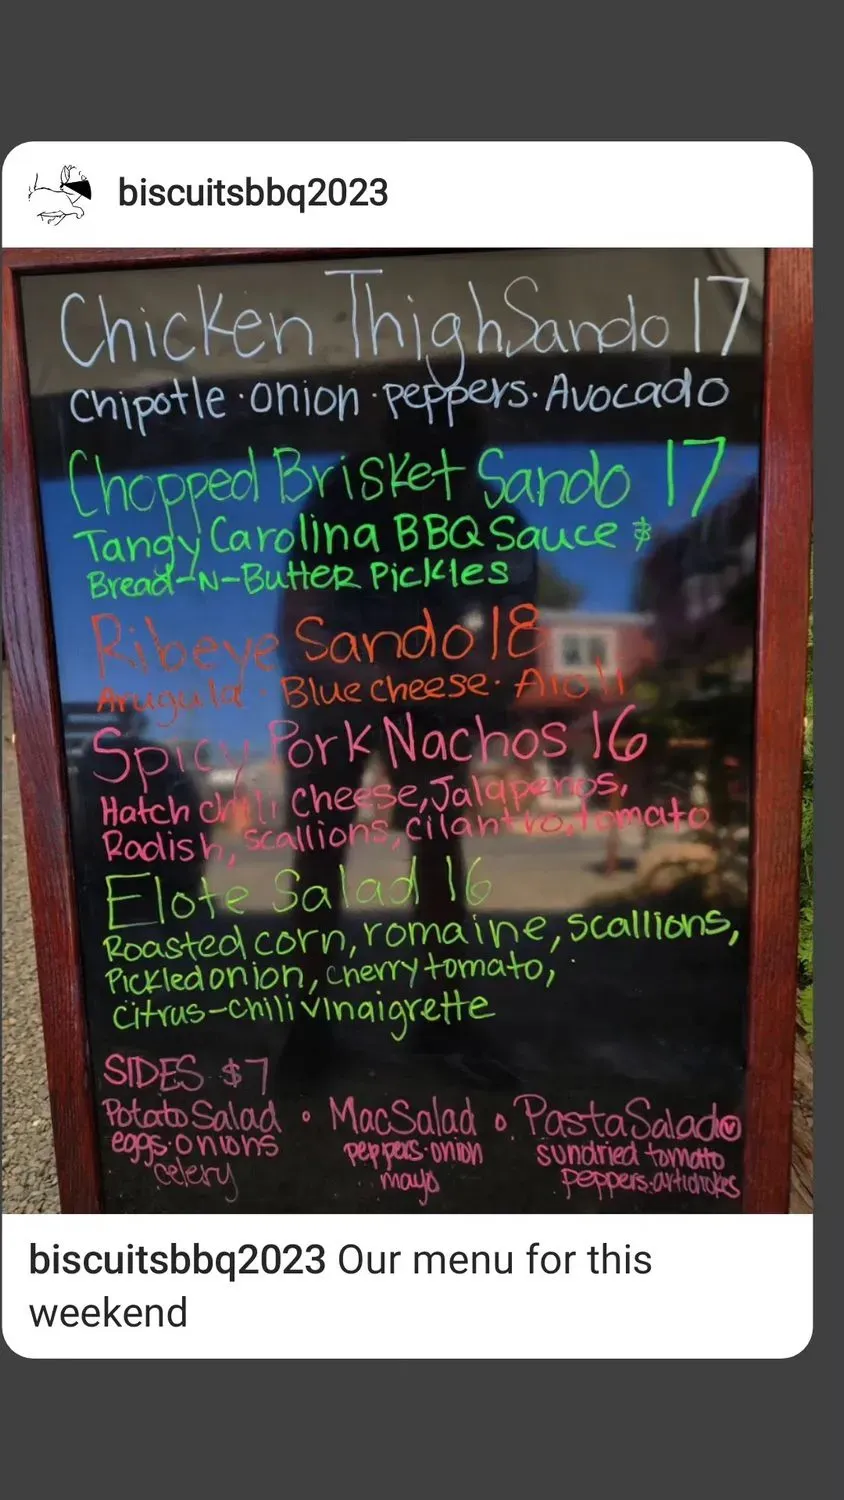 biscuitsbbq2023
Chicken Thigh Sando 17
Chipotle · onion · peppers · Avocado
Chopped Brisket Sando 17
Tangy Carolina BBQ Sauce &
Bread-N-Butter Pickles
Ribeye Sando 18
Arugula · Blue cheese · Aioli
Spicy Pork Nachos 16
Hatch chili cheese, Jalapeños,
Radish, scallions, cilantro, tomato
Elote Salad 16
Roasted corn, romaine, scallions,
Pickled onion, cherry tomato,
citrus-chili vinaigrette
SIDES $7
Potato Salad • Mac Salad • Pasta Salad V
eggs · onions peppers · onion sundried tomato
celery mayo peppers · artichokes
biscuitsbbq2023 Our menu for this
weekend